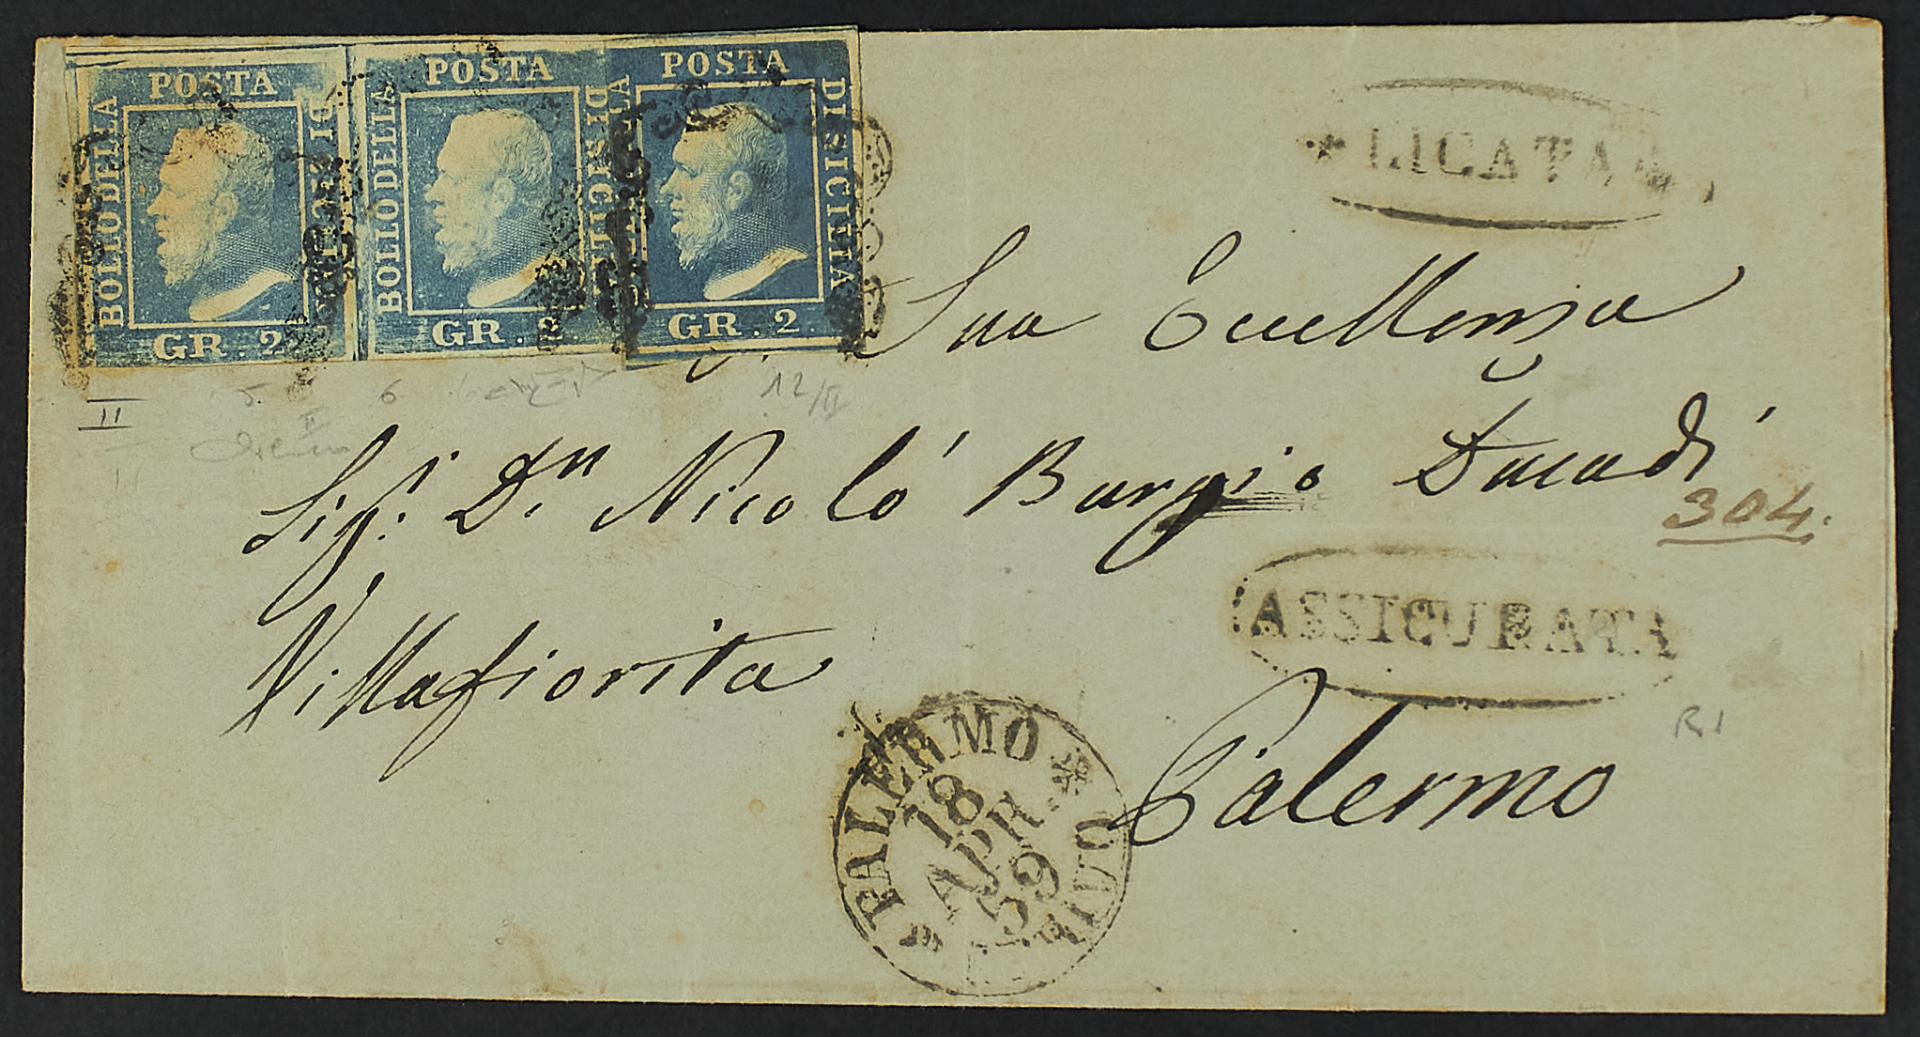 POSTA
BOLLO DELLA
DI SICILIA
GR. 2.
POSTA
BOLLO DELLA
DI SICILIA
GR. 2.
POSTA
DI SICILIA
GR. 2.
* LICATA
Sua Eccellenza
II 5. II 6 12/II
Sig.r Dn Nicolò Burgio Duca di
304.
ASSICURATA
Villafiorita
R1
Palermo
* PALERMO *
18
APR.
59